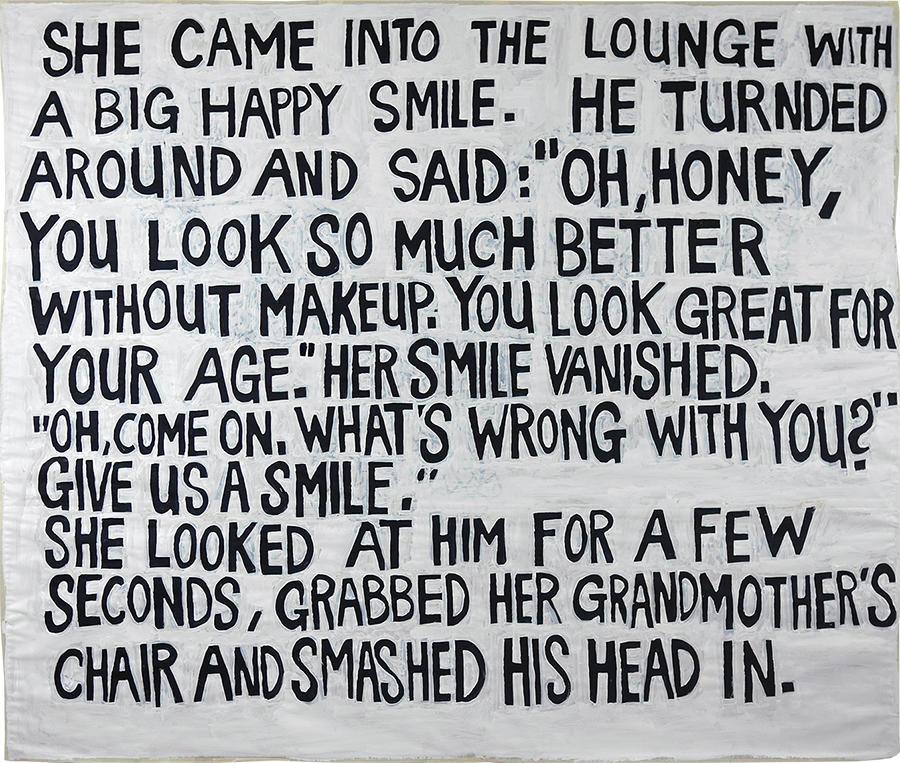 SHE CAME INTO THE LOUNGE WITH
A BIG HAPPY SMILE. HE TURNDED
AROUND AND SAID:"OH, HONEY,
YOU LOOK SO MUCH BETTER
WITHOUT MAKEUP. YOU LOOK GREAT FOR
YOUR AGE." HER SMILE VANISHED.
"OH, COME ON. WHAT'S WRONG WITH YOU?"
GIVE US A SMILE."
SHE LOOKED AT HIM FOR A FEW
SECONDS, GRABBED HER GRANDMOTHER'S
CHAIR AND SMASHED HIS HEAD IN.